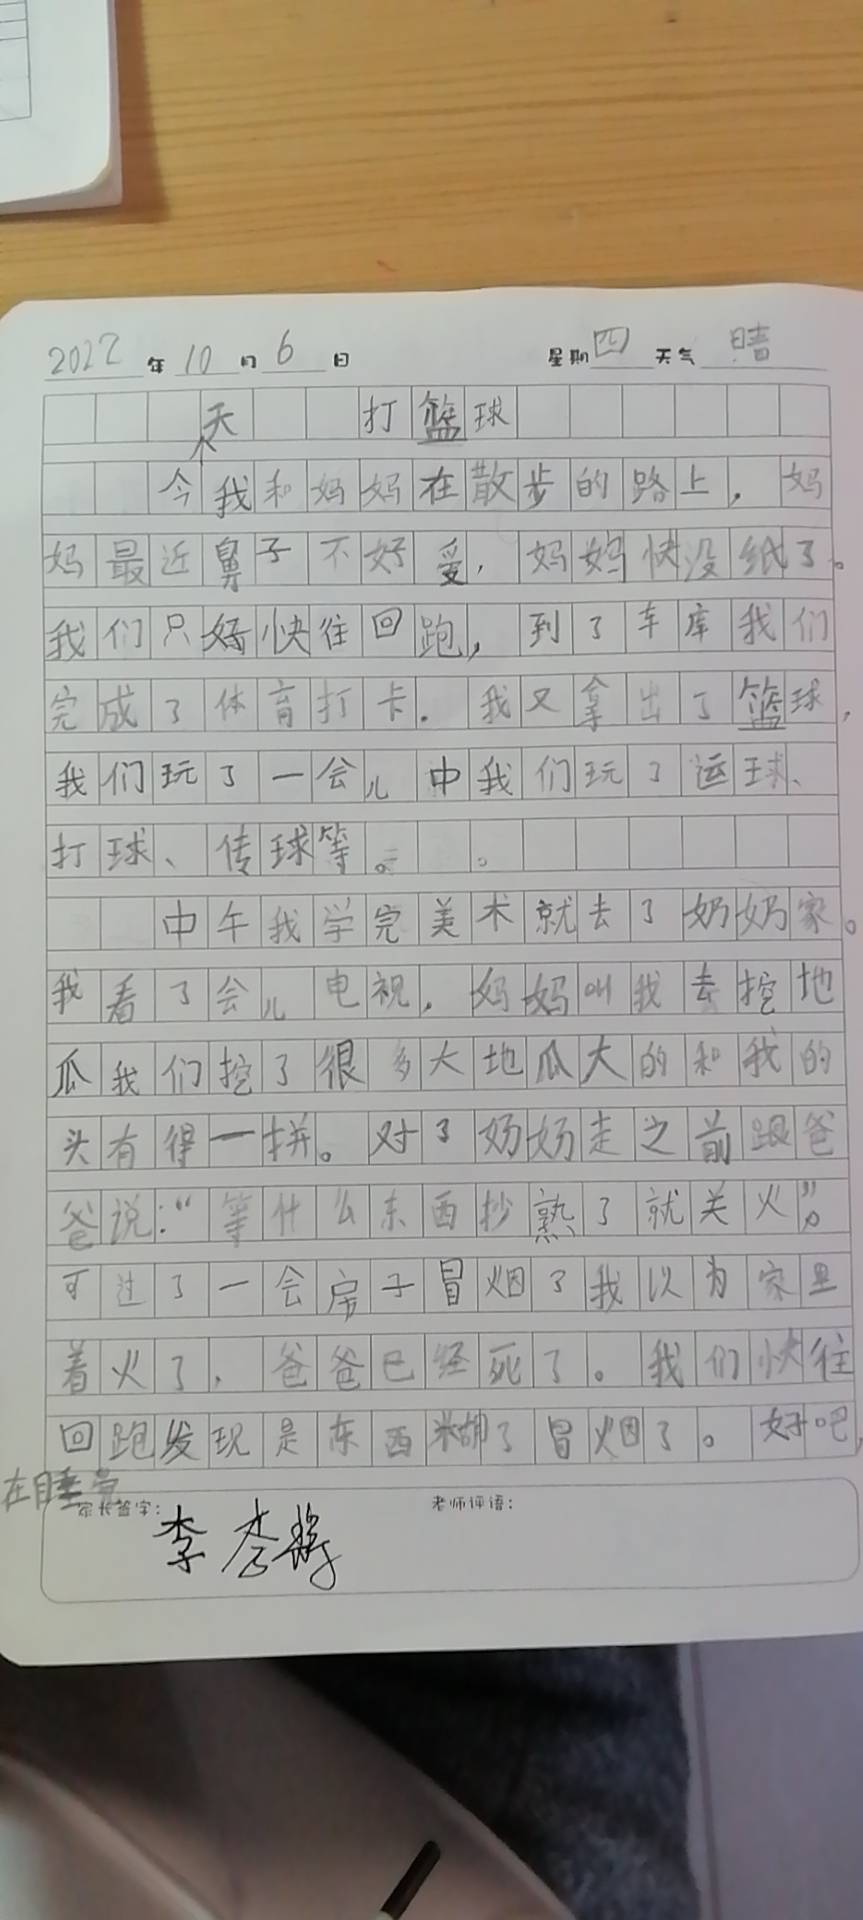 2022年10月6日 星期四 天气 晴
打篮球
今天我和妈妈在散步的路上，妈
妈最近鼻子不好受，妈妈快没纸了。
我们只好快往回跑，到了车库我们
完成了体育打卡．我又拿出了篮球，
我们玩了一会儿中我们玩了运球、
打球、传球等。 。
中午我学完美术就去了奶奶家。
我看了会儿电视，妈妈叫我去挖地
瓜我们挖了很多大地瓜大的和我的
头有得一拼。对了奶奶走之前跟爸
爸说：“等什么东西抄熟了就关火”。
可过了一会房子冒烟了我以为家里
着火了，爸爸已经死了。我们快往
回跑发现是东西糊了冒烟了。好吧，
在睡觉
家长签字： 老师评语：
李